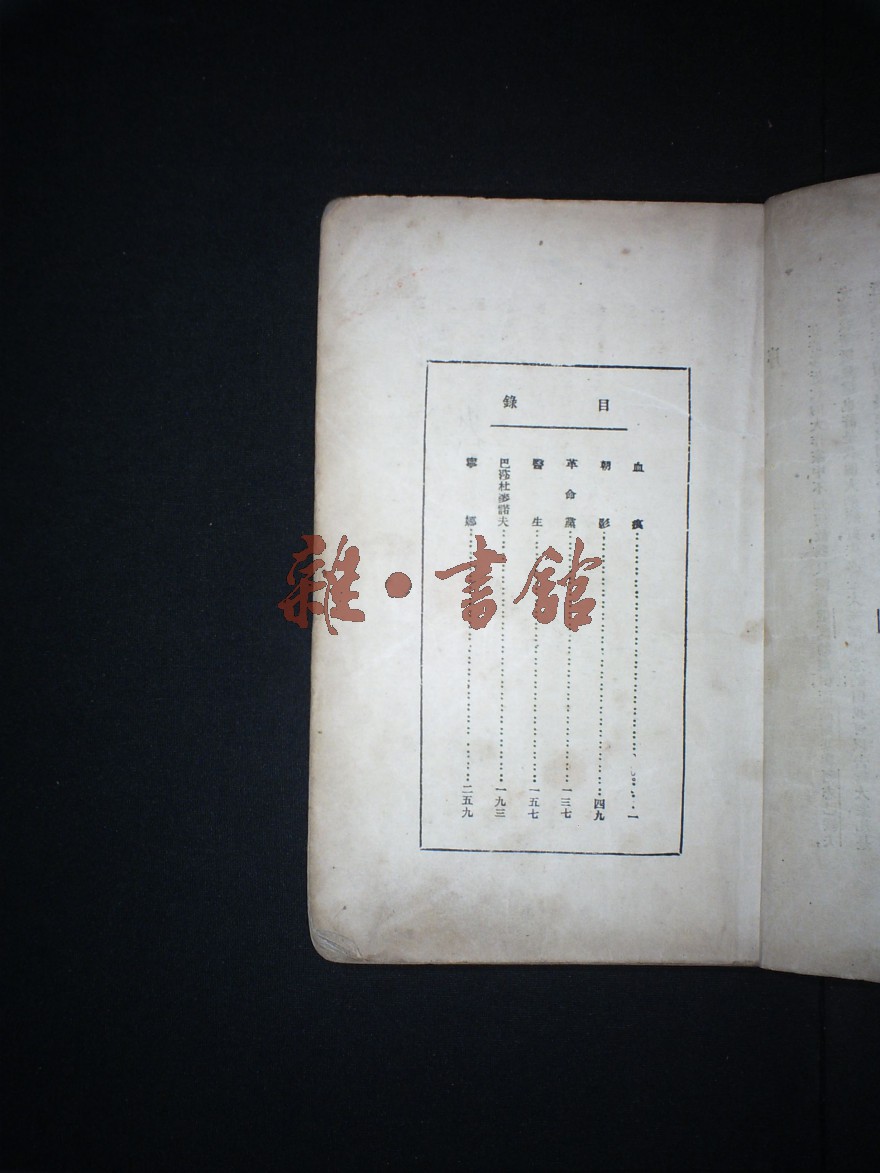 目錄
血痕 一
朝影 四九
革命黨 一三七
醫生 一五七
巴莎杜麥諾夫 一九三
寧娜 二五九
雜·書館